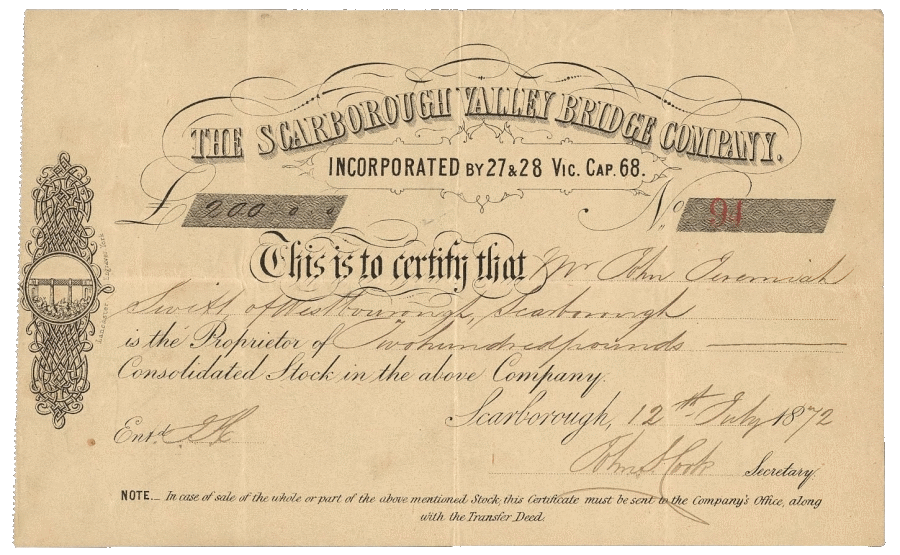 THE SCARBOROUGH VALLEY BRIDGE COMPANY.
INCORPORATED BY 27 & 28 VIC. CAP. 68.
£ 200 . 0 . 0 No 94
This is to certify that Mr John Jeremiah
Swift, of Westbourough, Scarborough
is the Proprietor of Two hundred pounds
Consolidated Stock in the above Company.
Scarborough, 12th July 1872
Entd.
John S Cook Secretary
NOTE._ In case of sale of the whole or part of the above mentioned Stock, this Certificate must be sent to the Company's Office, along
with the Transfer Deed.
Lancaster